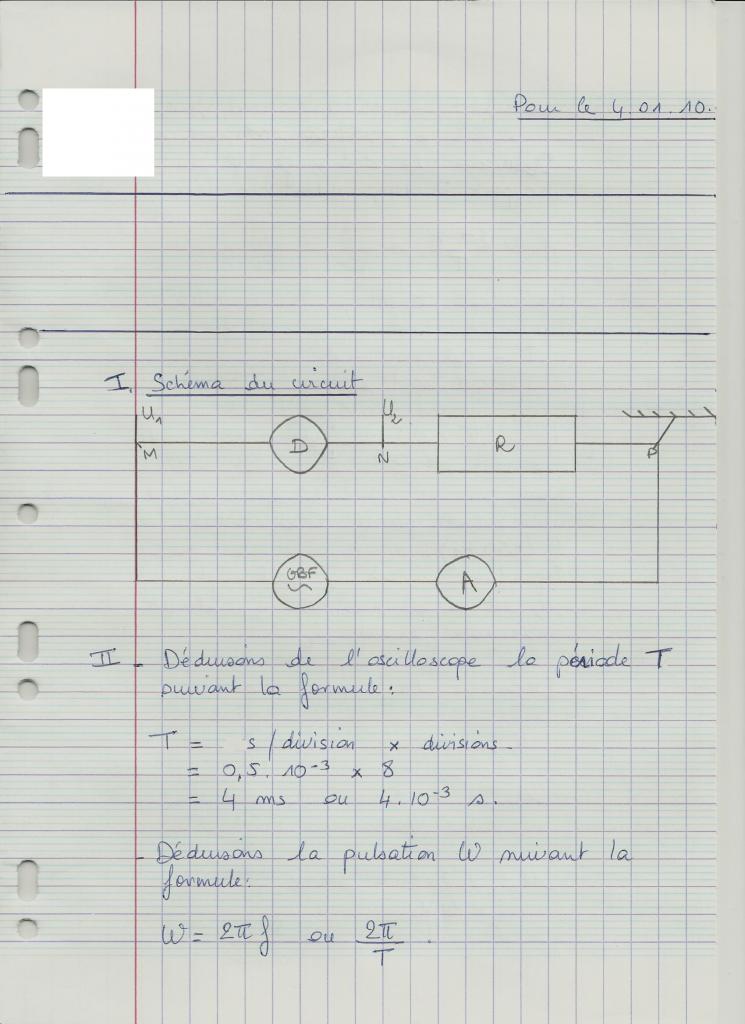 Pour le 4.01.10.
I. Schéma du circuit
U1 U2
M D N R P
GBF A
II - Déduisons de l'oscilloscope la période T
suivant la formule :
T = s / division × divisions.
= 0,5. 10⁻³ × 8
= 4 ms ou 4.10⁻³ s.
- Déduisons la pulsation W suivant la
formule:
W = 2πf ou 2π/T .